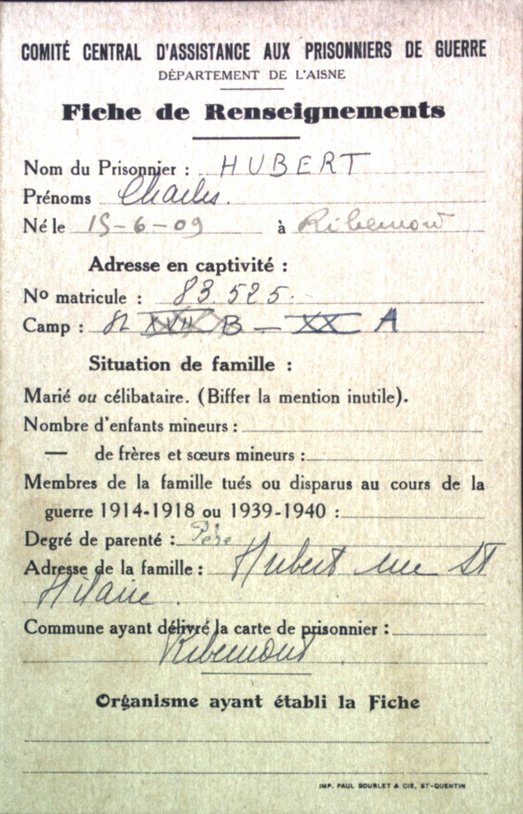 COMITÉ CENTRAL D'ASSISTANCE AUX PRISONNIERS DE GUERRE
DÉPARTEMENT DE L'AISNE
Fiche de Renseignements
Nom du Prisonnier : HUBERT
Prénoms Charles.
Né le 15-6-09 à Ribemont
Adresse en captivité :
No matricule : 83.525.
Camp : B — XX A
Situation de famille :
Marié ou célibataire. (Biffer la mention inutile).
Nombre d'enfants mineurs :
— de frères et sœurs mineurs :
Membres de la famille tués ou disparus au cours de la
guerre 1914-1918 ou 1939-1940 :
Degré de parenté : Père
Adresse de la famille : Hubert rue St
Hilaire.
Commune ayant délivré la carte de prisonnier :
Ribemont
Organisme ayant établi la Fiche
IMP. PAUL BOURLET & CIE, ST-QUENTIN